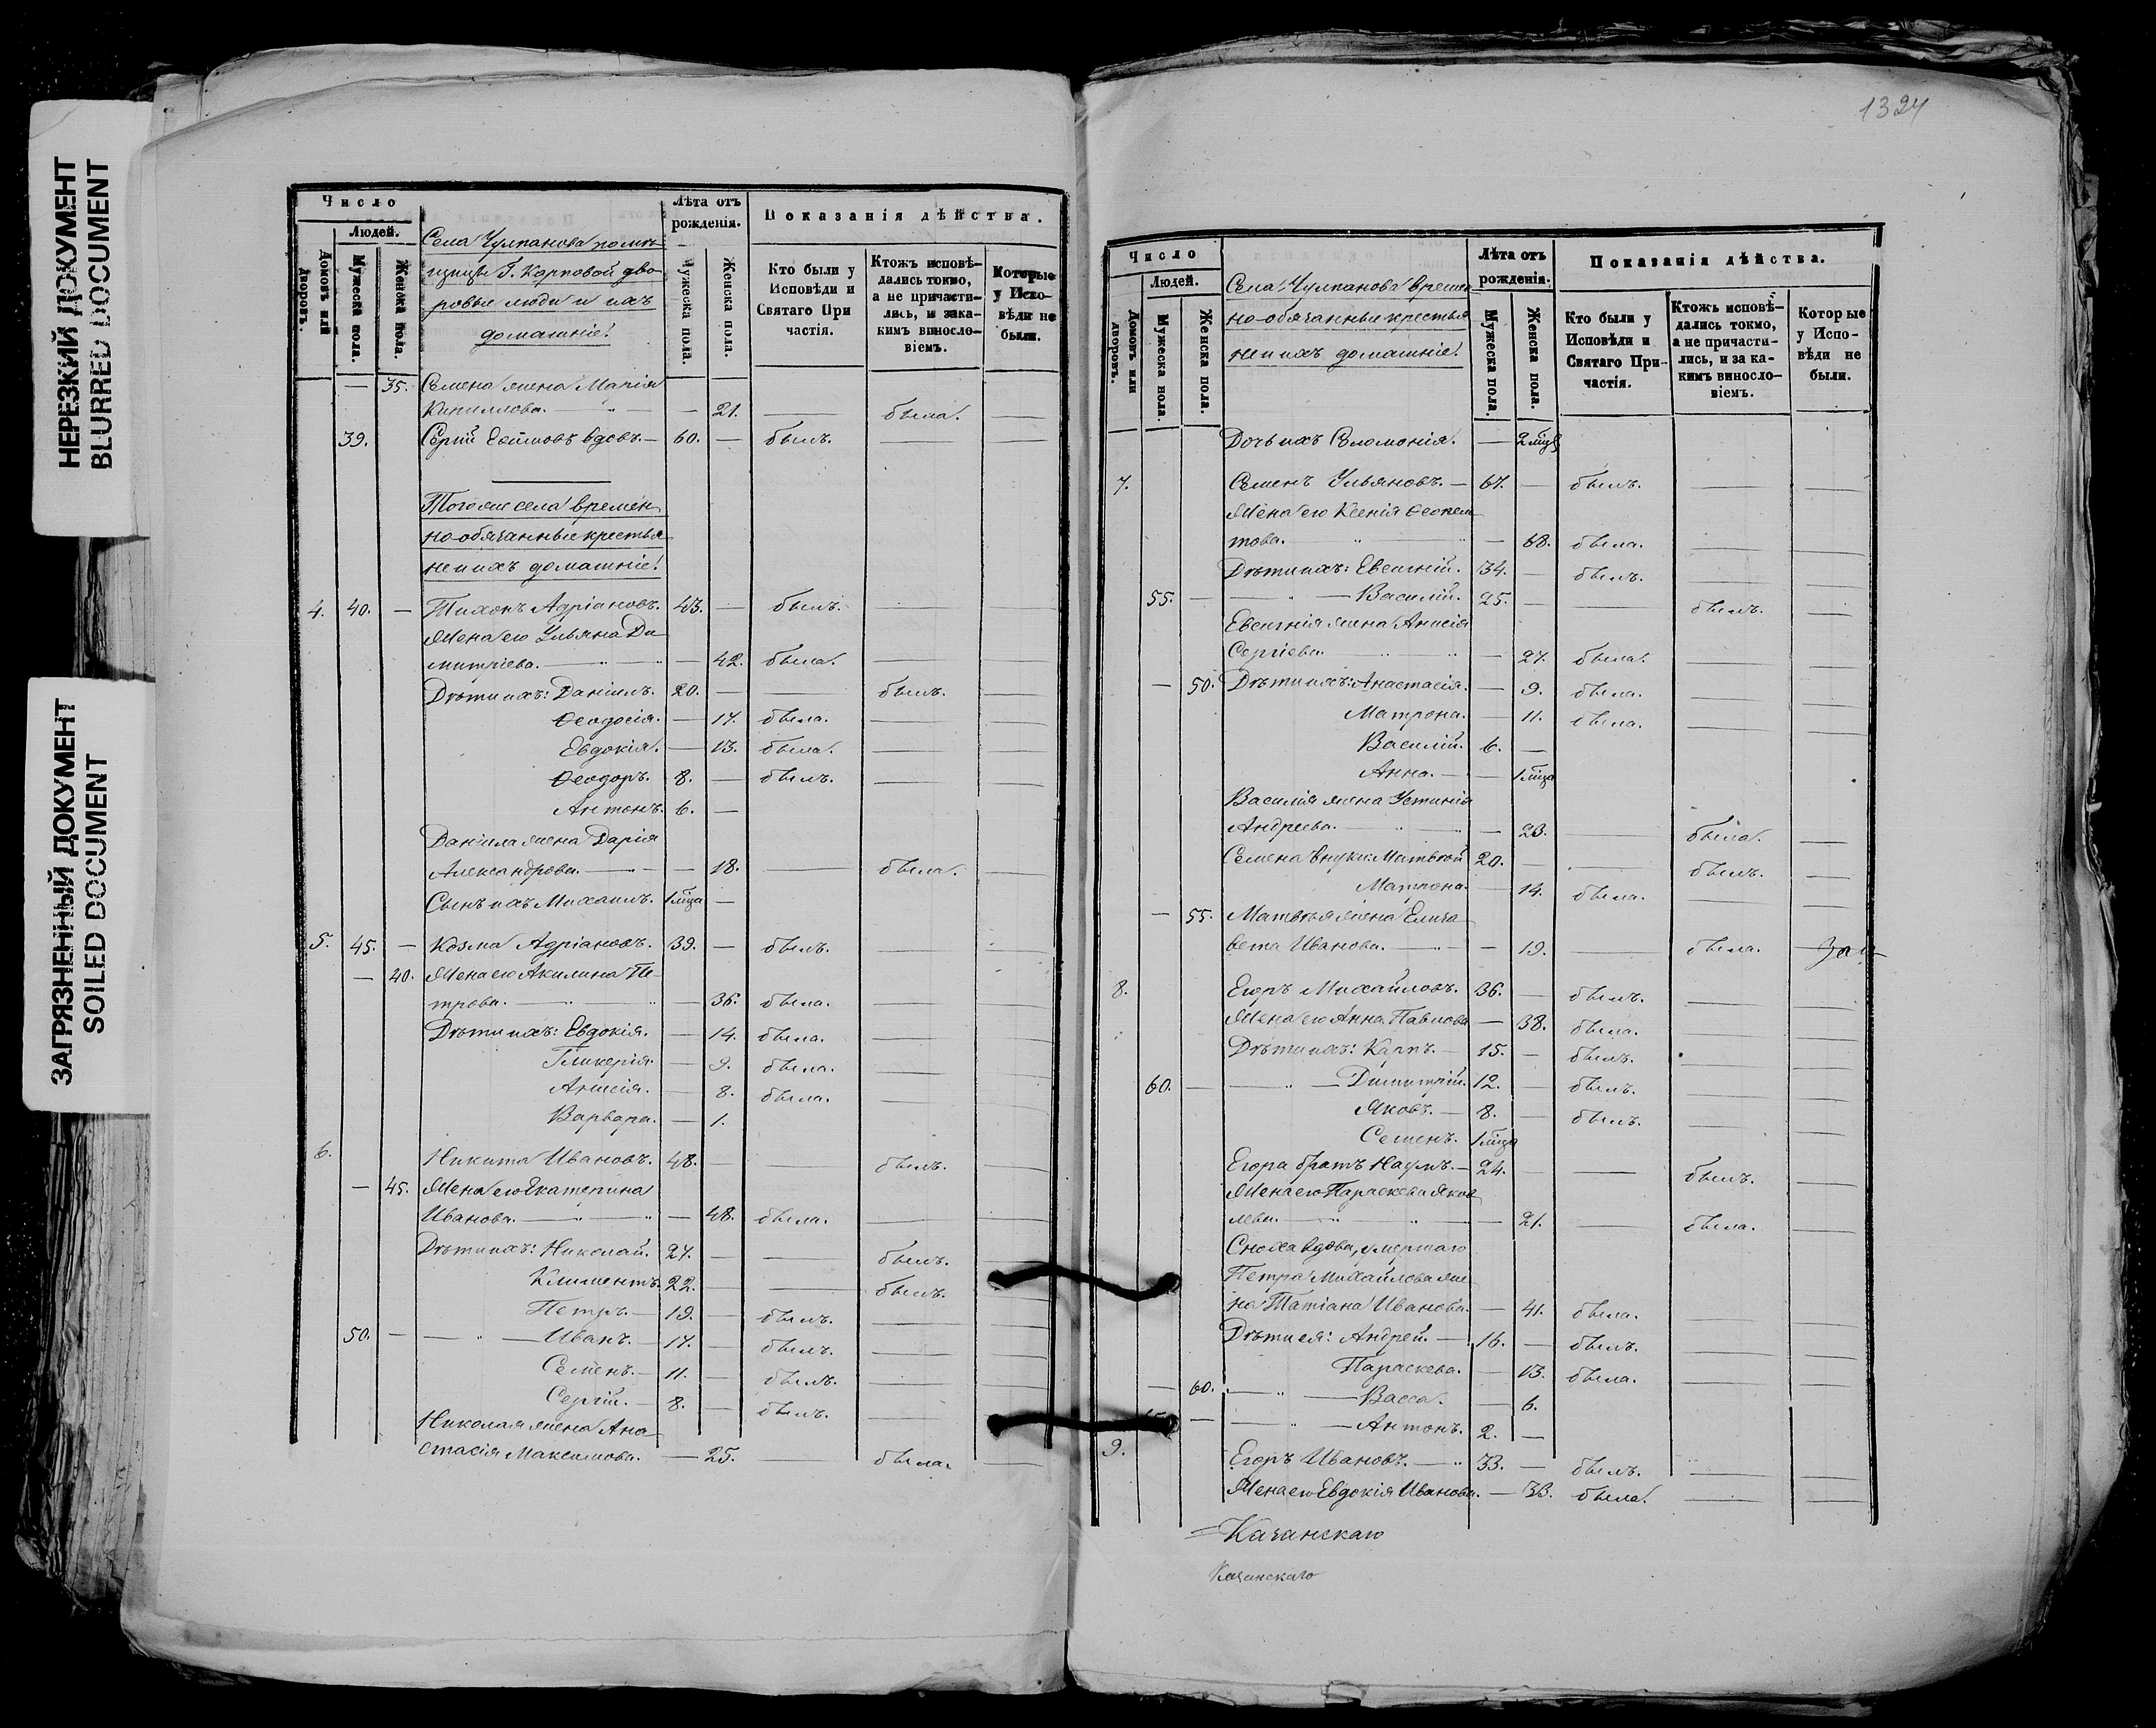 НЕРЕЗКИЙ ДОКУМЕНТ
BLURRED DOCUMENT
ЗАГРЯЗНЕННЫЙ ДОКУМЕНТ
SOILED DOCUMENT
Число
Людей.
Домовъ или дворовъ.
Мужеска пола.
Женска пола.
Села Чулпанова помѣ-
щицы Г. Карповой дво-
ровые люди и ихъ
домашніе:
Лѣта отъ рожденія.
Мужеска пола.
Женска пола.
Показанія дѣйства.
Кто были у Исповѣди и Святаго Причастія.
Ктожъ исповѣ-дались токмо, а не причасти-лись, и зака-кимъ винословіемъ.
Которые у Испо-вѣди не были.
— 35. Семена жена Марія
Кириллова. — " — — 21. — была. —
39. Сергій Ефимовъ вдовъ. — 60. — былъ. — —
Тогоже села времен
но-обязанные крестья
не и ихъ домашніе:
4. 40. — Тихонъ Адріановъ. 43. — былъ. — —
Жена его Ульяна Ди
митріева. — " — " — 42. была. — —
Дѣти ихъ: Даніилъ. 20. — — былъ. —
Феодосія. — 17. была. — —
Евдокія. — 13. была. — —
Феодоръ. 8. — былъ. — —
Антонъ. 6. —
Даніила жена Дарія
Александрова. — " — — 18. — была. —
Сынъ ихъ Михаилъ. 1 мѣца —
5. 45. — Козма Адріановъ. 39. — былъ. — —
— 40. Жена его Акилина Пе-
трова. — " — " — 36. была. — —
Дѣти ихъ: Евдокія. — 14. была. — —
Гликерія. — 9. была. — —
Анисія. — 8. была. — —
Варвара. — 1.
6. Никита Ивановъ. 48. — — былъ. —
— 45. Жена его Екатерина
Иванова. — " — " — 48. была. — —
Дѣти ихъ: Николай. 27. — — былъ. —
Климентъ. 22. — — былъ. —
Петръ. — 19. — былъ. — —
50. — — " — Иванъ. — 17. — былъ. — —
Семенъ. — 11. — былъ. — —
Сергій. — 8. — былъ. — —
Николая жена Ана
стасія Максимова. — 25. — была. —
1324
Число
Людей.
Домовъ или дворовъ.
Мужеска пола.
Женска пола.
Села Чулпанова времен
но-обязанные крестья
не и ихъ домашніе:
Лѣта отъ рожденія.
Мужеска пола.
Женска пола.
Показанія дѣйства.
Кто были у Исповѣди и Святаго При-частія.
Ктожъ исповѣ-дались токмо, а не причасти-лись, и за ка-кимъ винословіемъ.
Которые у Испо-вѣди не были.
Дочь ихъ Соломонія. — 2 мѣц
7. Семенъ Ульяновъ. — 67. — былъ. — —
Жена его Ксенія Феопем
това. " — " — 68. была. — —
Дѣти ихъ: Евсигній. 34. — былъ. — —
55. — — " — Василій. 25. — — былъ. —
Евсигнія жена Анисія
Сергіева. — " — " — 27. была. — —
— 50. Дѣти ихъ: Анастасія. — 9. была. — —
Матрона. — 11. была. — —
Василій. 6. —
Анна. — — 1 мѣца
Василія жена Устинія
Андреева. — " — — 23. — была. —
Семена внуки: Матвѣй 20. — — былъ. —
Матрона. — 14. была. — —
— 55. Матвѣя жена Елиза
вета Иванова. — " — 19. — была. —
8. Егоръ Михайловъ. 36. — былъ. — —
Жена его Анна Павлова — 38. была. — —
Дѣти ихъ: Карпъ. — 15. — былъ. — —
60. — — " — Димитрій. 12. — былъ. — —
Яковъ. — 8. — былъ. — —
Семенъ. 1 мѣца
Егора братъ Наумъ. — 24. — — былъ. —
Жена его Параскева Яков
лева. — " — " — 21. — была. —
Сноха вдова, умершаго
Петра Михайлова же
на Татіана Иванова. — 41. была. — —
Дѣти ея: Андрей. — 16. — былъ. — —
Параскева. — 13. была. — —
— 60. — " — Васса. — 6.
— — " — Антонъ. 2. —
9. Егоръ Ивановъ. — " 33. — былъ. — —
Жена его Евдокія Иванова. — 33. была. — —
Качанскаго
Качанскаго